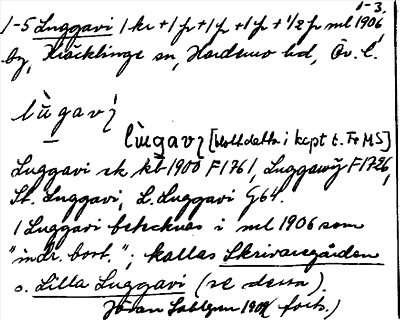 1-3,
1-5 Luggavi 1 kr +1 p +1 p +1 p + 1/2 p ml 1906,
by, Kräcklinge sn, Hardemo hd, Ör. l.
lùgavi
lùgavi [Kolldelta i kapt t. Fr MS]
Luggavi sk kb 1900 F1761, Luggawÿ F1726,
St. Luggavi, L. Luggavi G64.
1 Luggavi betecknas i ml 1906 som
"indr. bost."; kallas Skrivaregården
o. Lilla Luggavi (se dessa).
Jöran Sahlgren (forts.)